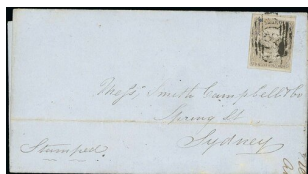 Messrs Smith Campbell & Co
Spring St
Sydney
Stamped